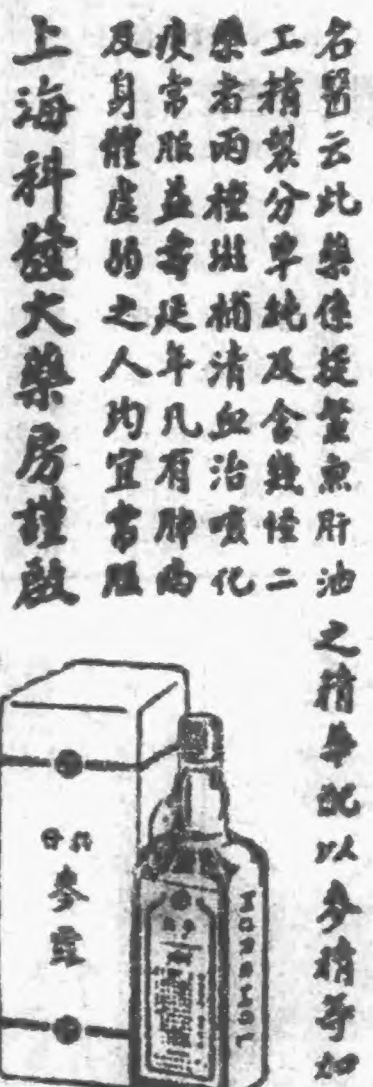 名醫云此藥係提魚肝油之精華配以麥精等加
工精製分單純及含幾怪二
藥者兩種滋補清血治咳化
痰常服益壽延年凡有肺病
及身體虛弱之人均宜常服
上海科發大藥房謹啟